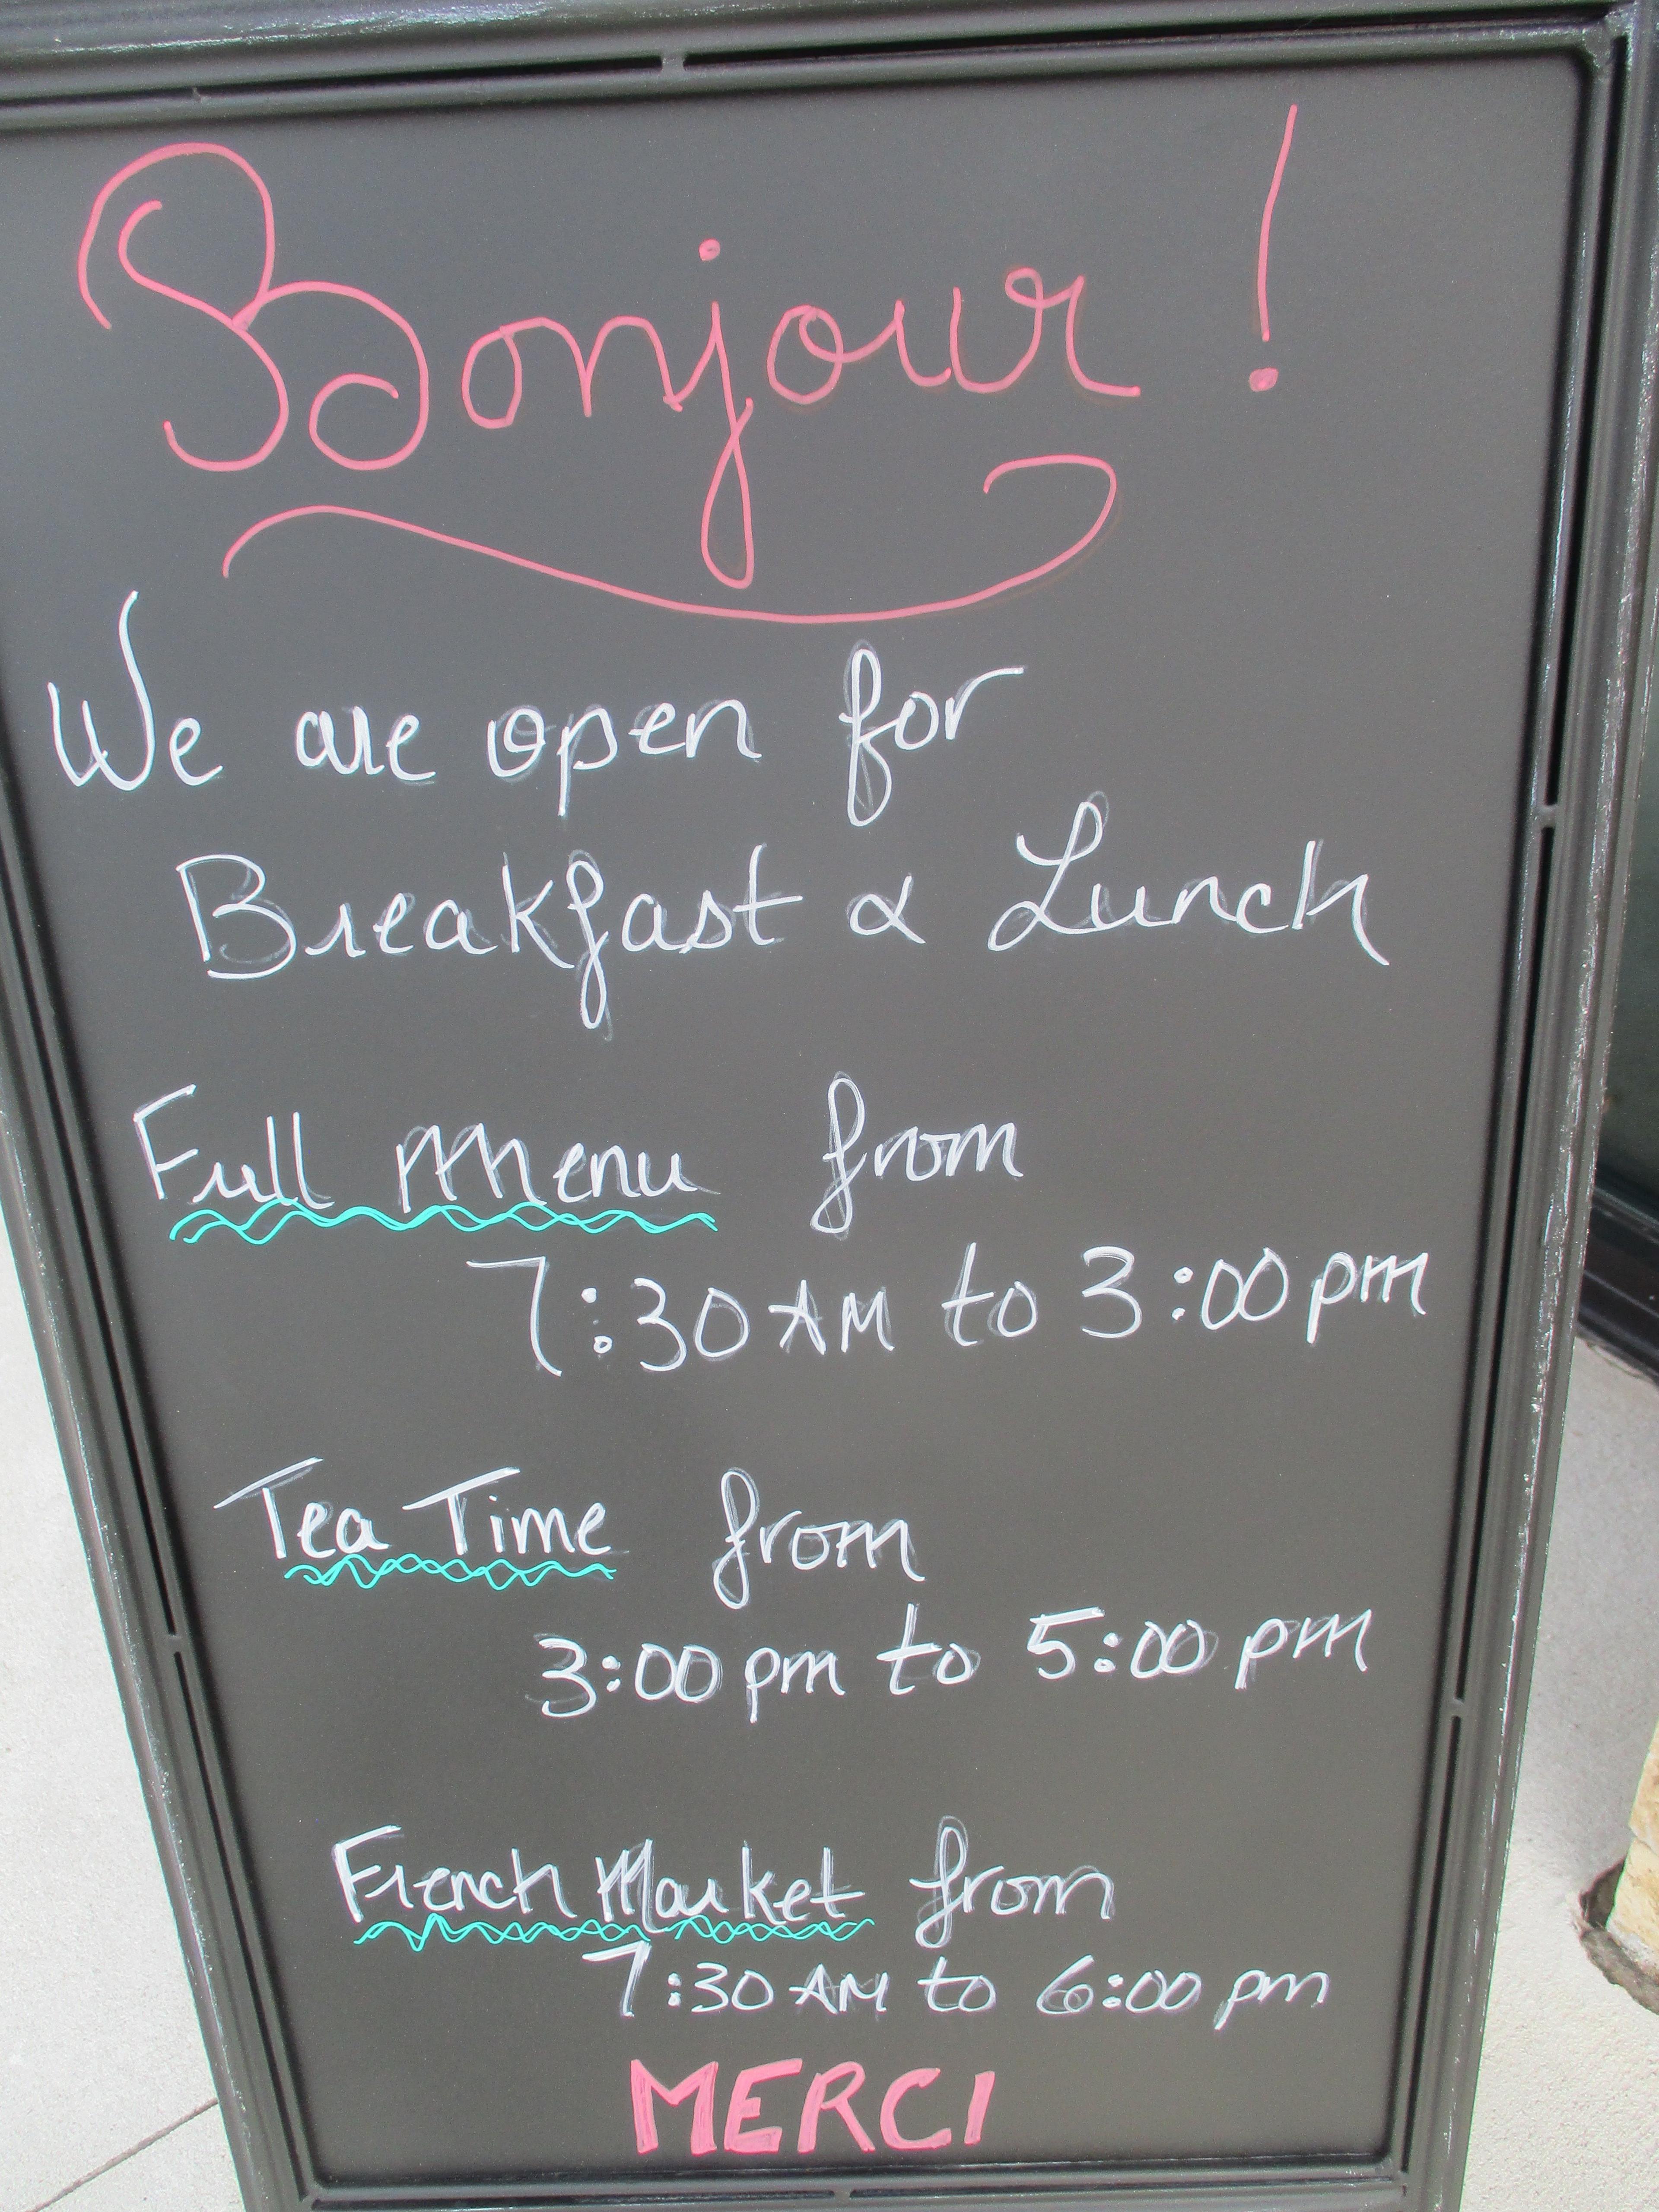 Bonjour !
We are open for
Breakfast & Lunch
Full Menu from
7:30 AM to 3:00 pm
Tea Time from
3:00 pm to 5:00 pm
French Market from
7:30 AM to 6:00 pm
MERCI